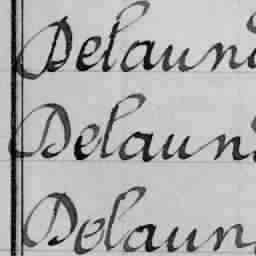 Delaun
Delaun
Delaun